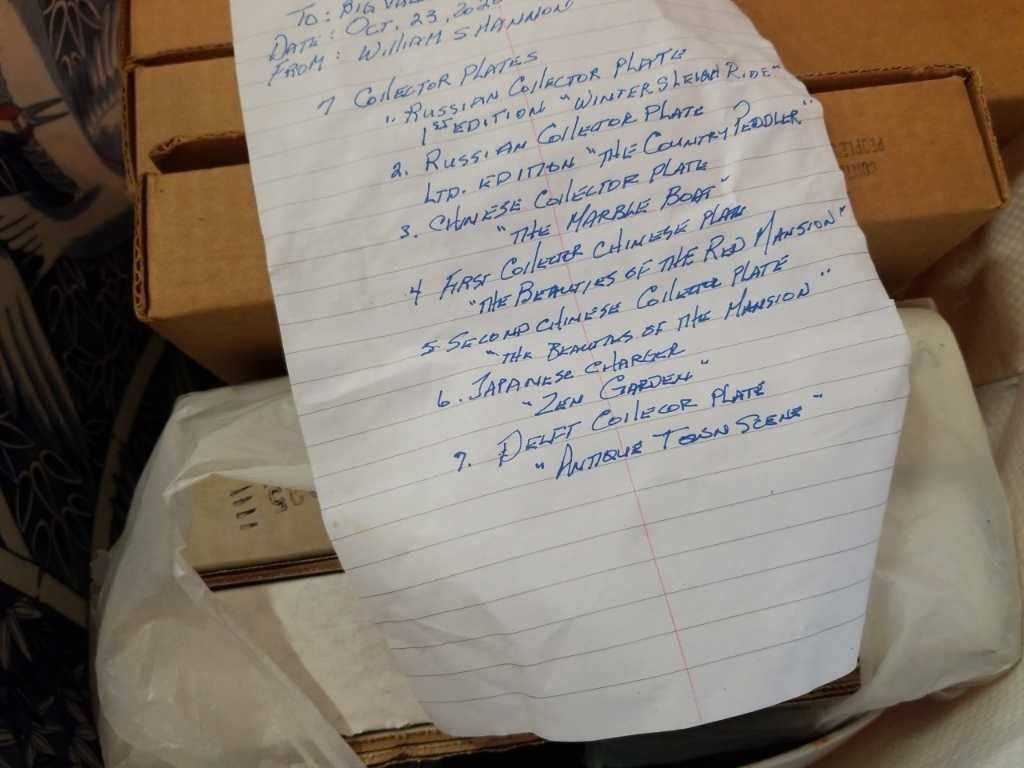 TO: BIG
DATE: OCT. 23, 2020
FROM: WILLIAM SHANNON
7 COLLECTOR PLATES
1. RUSSIAN COLLECTOR PLATE
1ST EDITION "WINTER SLEIGH RIDE"
2. RUSSIAN COLLECTOR PLATE
LTD. EDITION "THE COUNTRY PEDDLER"
3. CHINESE COLLECTOR PLATE
"THE MARBLE BOAT"
4 FIRST COLLECTOR CHINESE PLATE
"THE BEAUTIES OF THE RED MANSION"
5. SECOND CHINESE COLLECTOR PLATE
"THE BEAUTIES OF THE MANSION"
6. JAPANESE CHARGER
"ZEN GARDEN"
7. DELFT COLLECOR PLATE
"ANTIQUE TOWN SCENE"